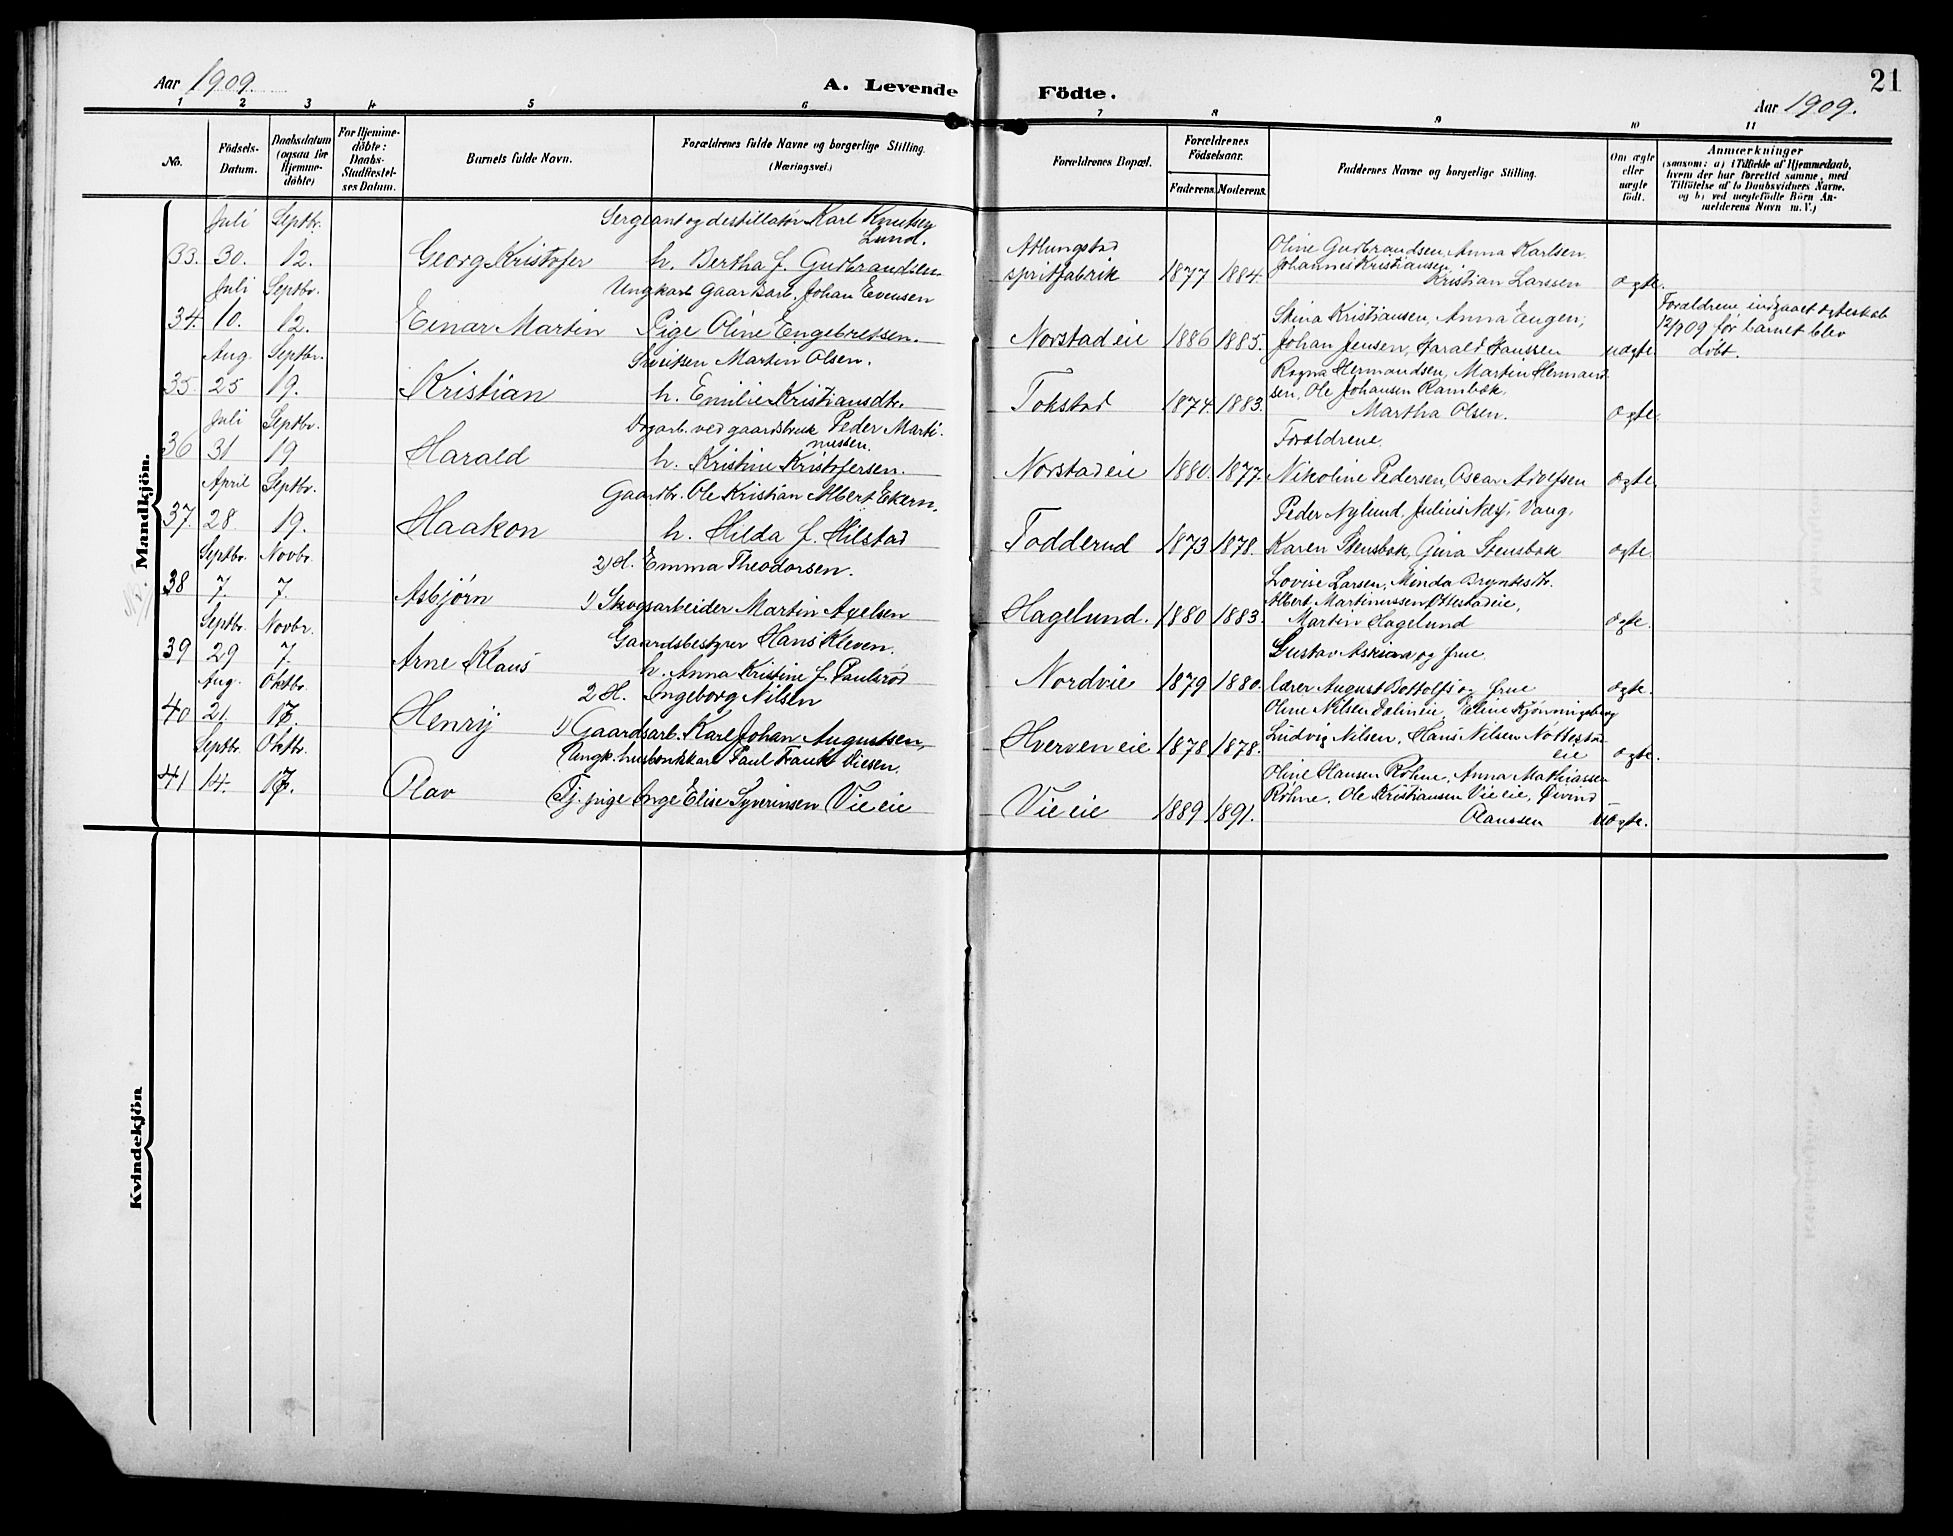 Aar 1909.
A. Levende Födte.
21
Aar 1909.
1 2 3 4 5 6 7 8 9 10 11
No.
Födsels-Datum.
Daabsdatum (ogsaa for Hjemme-döbte)
For Hjemme-döbte: Daabs-Stadfæstel-ses Datum.
Barnets fulde Navn.
Forældrenes fulde Navne og borgerlige Stilling. (Næringsvei.)
Forældrenes Bopæl.
Forældrenes Födselsaar.
Faderens. Moderens.
Faddernes Navne og borgerlige Stilling.
Om ægte eller uægte födt.
Anmærkninger
(saasom: a) i Tilfælde af Hjemmedaab,
hvem der har forrettet samme, med
Tilföielse af to Daabsvidners Navne,
og b) ved uægtefödte Börn An-
melderens Navn m. V.)
Mandkjön.
Juli Septbr. Sergeant og destillatør Karl Knutsen Lund.
33. 30. 12. Georg Kristofer h. Bertha f. Gudbrandsen
Atlungstad spritfabrik 1877 1884. Oline Gudbrandsen, Anna Karlsen, Johannes Kristiansen, Kristian Larssen ægte.
Juli Septbr. Ungkarl Gaardarb. Johan Evensen
34. 10. 12. Einar Martin Pige Oline Engebretsen.
Norstadeie 1886 1885. Stina Kristiansen, Anna Eugen, Johan Jensen, Harald Hanssen uægte.
Forældrene indgaaet ægteskab 12/9 09 før barnet blev døbt.
Aug. Septbr. Martin Olsen.
35. 25 19. Kristian h. Emilie Kristiansdtr.
Tokstad 1874. 1883. Ragna Hermandsen, Martin Hermandsen, Ole Johansen Rambæk, Martha Olsen. ægte.
Juli Septbr. Dagarb. ved gaardsbruk Peder Martinussen.
36 31 19 Harald h. Kristine Kristofersen.
Norstadeie 1880. 1877. Forældrene, Nikoline Pedersen, Oscar Adolfsen ægte.
April Septbr. Gaardbr. Ole Kristian Albert Ekern.
37. 28. 19. Haakon h. Hilda f. Hilstad
Todderud 1873 1878. Peder Nylund, Julius Næs, Vang, Karen Stensbak, Gina Stensbak ægte.
Septbr. Novbr. 2) H. Emma Theodorsen.
38 7. 7. Asbjørn 1) Skogsarbeider Martin Axelsen
Hagelund. 1880 1883. Lovise Larsen, Minda Bryntesdtr. Albert Martinussen Ottestadeie, Martin Hagelund ægte.
Septbr. Novbr. Gaardsbestyrer Hans Kleven.
39 29 7. Arne Klaus h. Anna Kristine f. Paulsrød
Nordvie 1879 1880. Gustav og frue, lærer August Bottolfs og frue ægte.
Aug. Oktbr. 2 H. Ingeborg Nilsen
40 21. 17. Henry 1) Gaardsarb. Karl Johan Augustsen,
Hverveneie 1878 1878. Oline Nilsen Dælineie, Eline Kjønningsberg Ludvig Nilsen, Hans Nilsen Nøttestadeie ægte.
Septbr. Oktbr. Ungk. husbonkkarl Paul Frankt Viesen.
41 14. 17. Olav Tj. pige Inge Elise Syverinsen Vieeie
Vieeie 1889 1891. Oline Hansen Røhne, Anna Mathiassen Røhne, Ole Kristiansen Vieeie, Øivind Olaussen uægte.
Kvindekjön